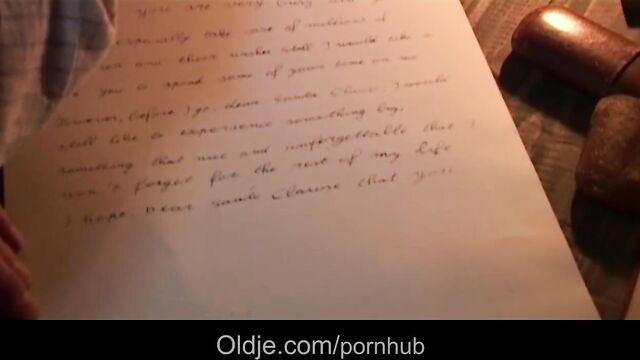 you are very busy and
especially take care of millions of
and their wishes still I would like
you to spend some of your time on me
However, before I go, dear Santa Clause, I would
still like to experience something big,
something that nice and unforgettable that I
won't forget for the rest of my life
I hope, Dear Santa Clause that you
Oldje.com/pornhub